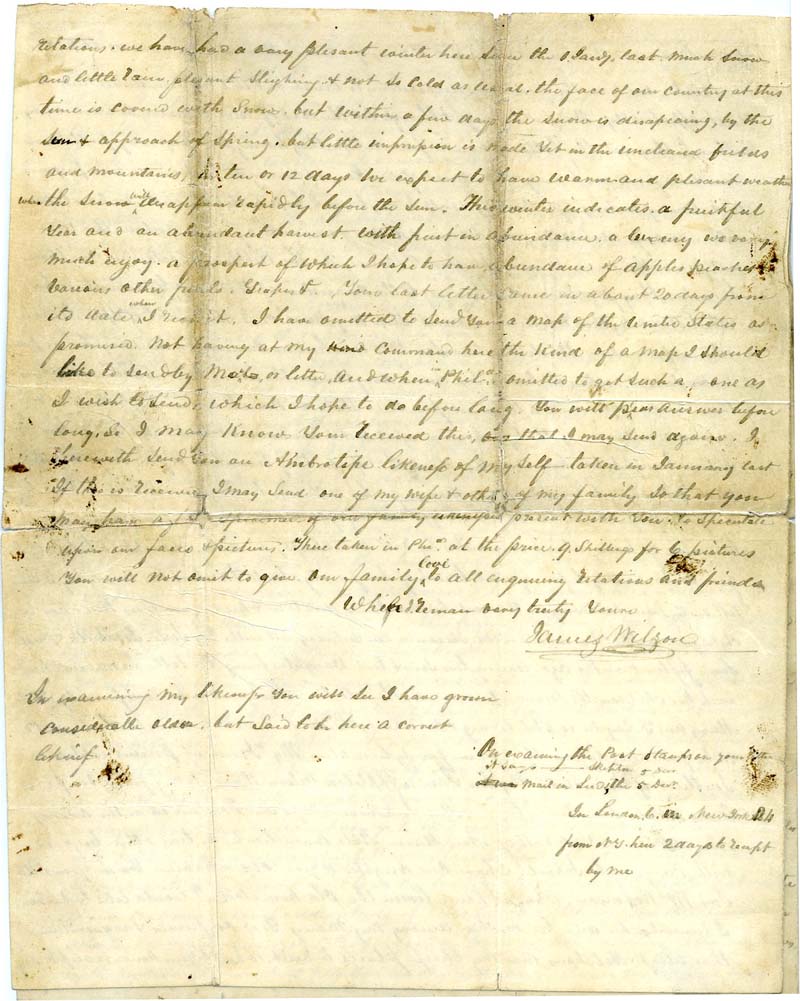 relations. we have had a very plesant winter here since the 1 Jany. last much snow
and little rain, plesant Sleighing & not so cold as usual. the face of our country at this
time is covered with Snow. but within a few days the snow is disapearing, by the
sun & approach of Spring. but little impression is made yet in the uncleard fields
and mountains, in ten or 12 days we expect to have warm and plesant weather
when the snow will disappear rapidly before the sun. This winter indicates a fruitful
Year and an abundant harvest. with fruit in abundance. a luxury we very
much enjoy. a prospect of which I hope to have abundance of Apples peaches &
various other fruits. Grapes &. Your last letter came in about 20 days from
its date when I receivd it. I have omitted to send you a map of the United States as
promised. Not having at my command here the kind of a map I should
like to send by Mail, or letter, and when in Phila. omitted to get such a one as
I wish to send, which I hope to do before long. You will pleas answer before
long, So I may Know Your receeved this, that I may send again. I
herewith send you an Ambrotipe likeness of my self taken in January last
If this is received I may send one of my wife & others of my family So that you
may have a of our family present with you. to Speculate
upon our faces & pictures. These taken in Pha. at the price 9 Shillings for 6 pictures
You will not omit to give our family love to all enquiring relations and friends
While I remain very truly Yours
James Wilson
In examining my likeness You will see I have grown
considerable older, but said to be here a correct
likness
On examing the Post Stamps on your letter
it says 5 Dec
mail in the 5 Decr.
In London 6. in New York 24
from N Y. here 2 days to receipt
by me